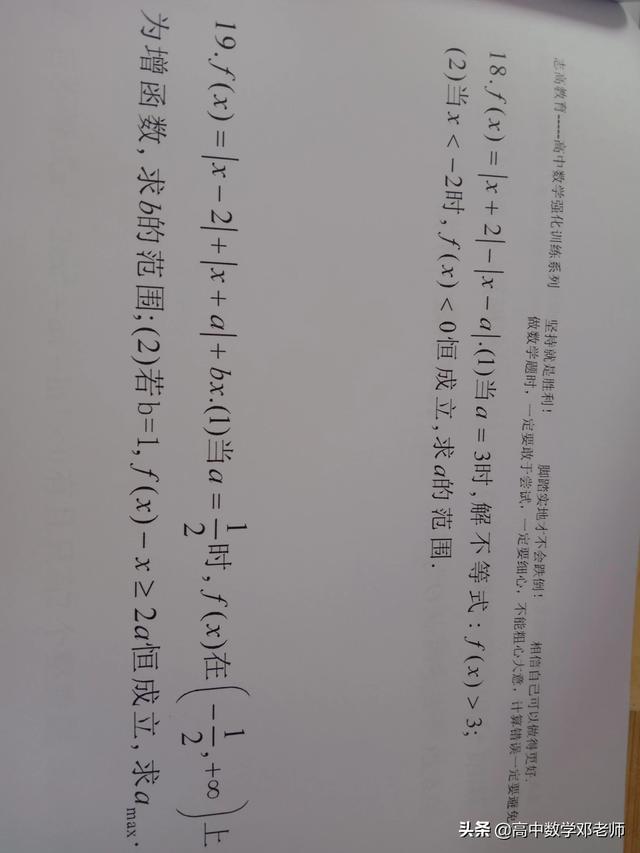 志高教育-----高中数学强化训练系列 坚持就是胜利! 脚踏实地才不会跌倒! 相信自己可以做得更好.
做数学题时,一定要敢于尝试,一定要细心,不能粗心大意,计算错误一定要避免
18.f(x)=|x+2|-|x-a|.(1)当a=3时,解不等式:f(x)>3;
(2)当x<-2时,f(x)<0恒成立,求a的范围.
19.f(x)=|x-2|+|x+a|+bx.(1)当a=1/2时,f(x)在(-1/2,+∞)上
为增函数,求b的范围;(2)若b=1,f(x)-x≥2a恒成立,求a_max.
头条 @高中数学邓老师